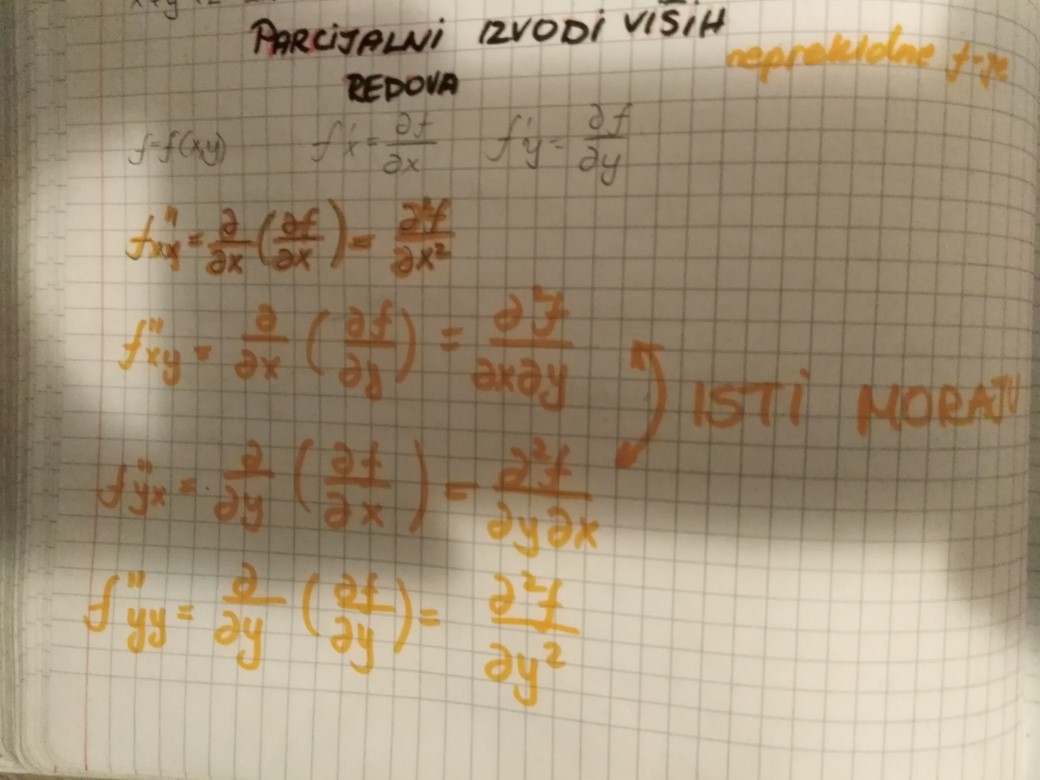 PARCIJALNI IZVODI VIŠIH
REDOVA
neprekidne f-je
f=f(x,y) f'x = ∂f/∂x f'y = ∂f/∂y
f''xx = ∂/∂x (∂f/∂x) = ∂²f/∂x²
f''xy = ∂/∂x (∂f/∂y) = ∂²f/∂x∂y
ISTI MORAJU
f''yx = ∂/∂y (∂f/∂x) = ∂²f/∂y∂x
f''yy = ∂/∂y (∂f/∂y) = ∂²f/∂y²